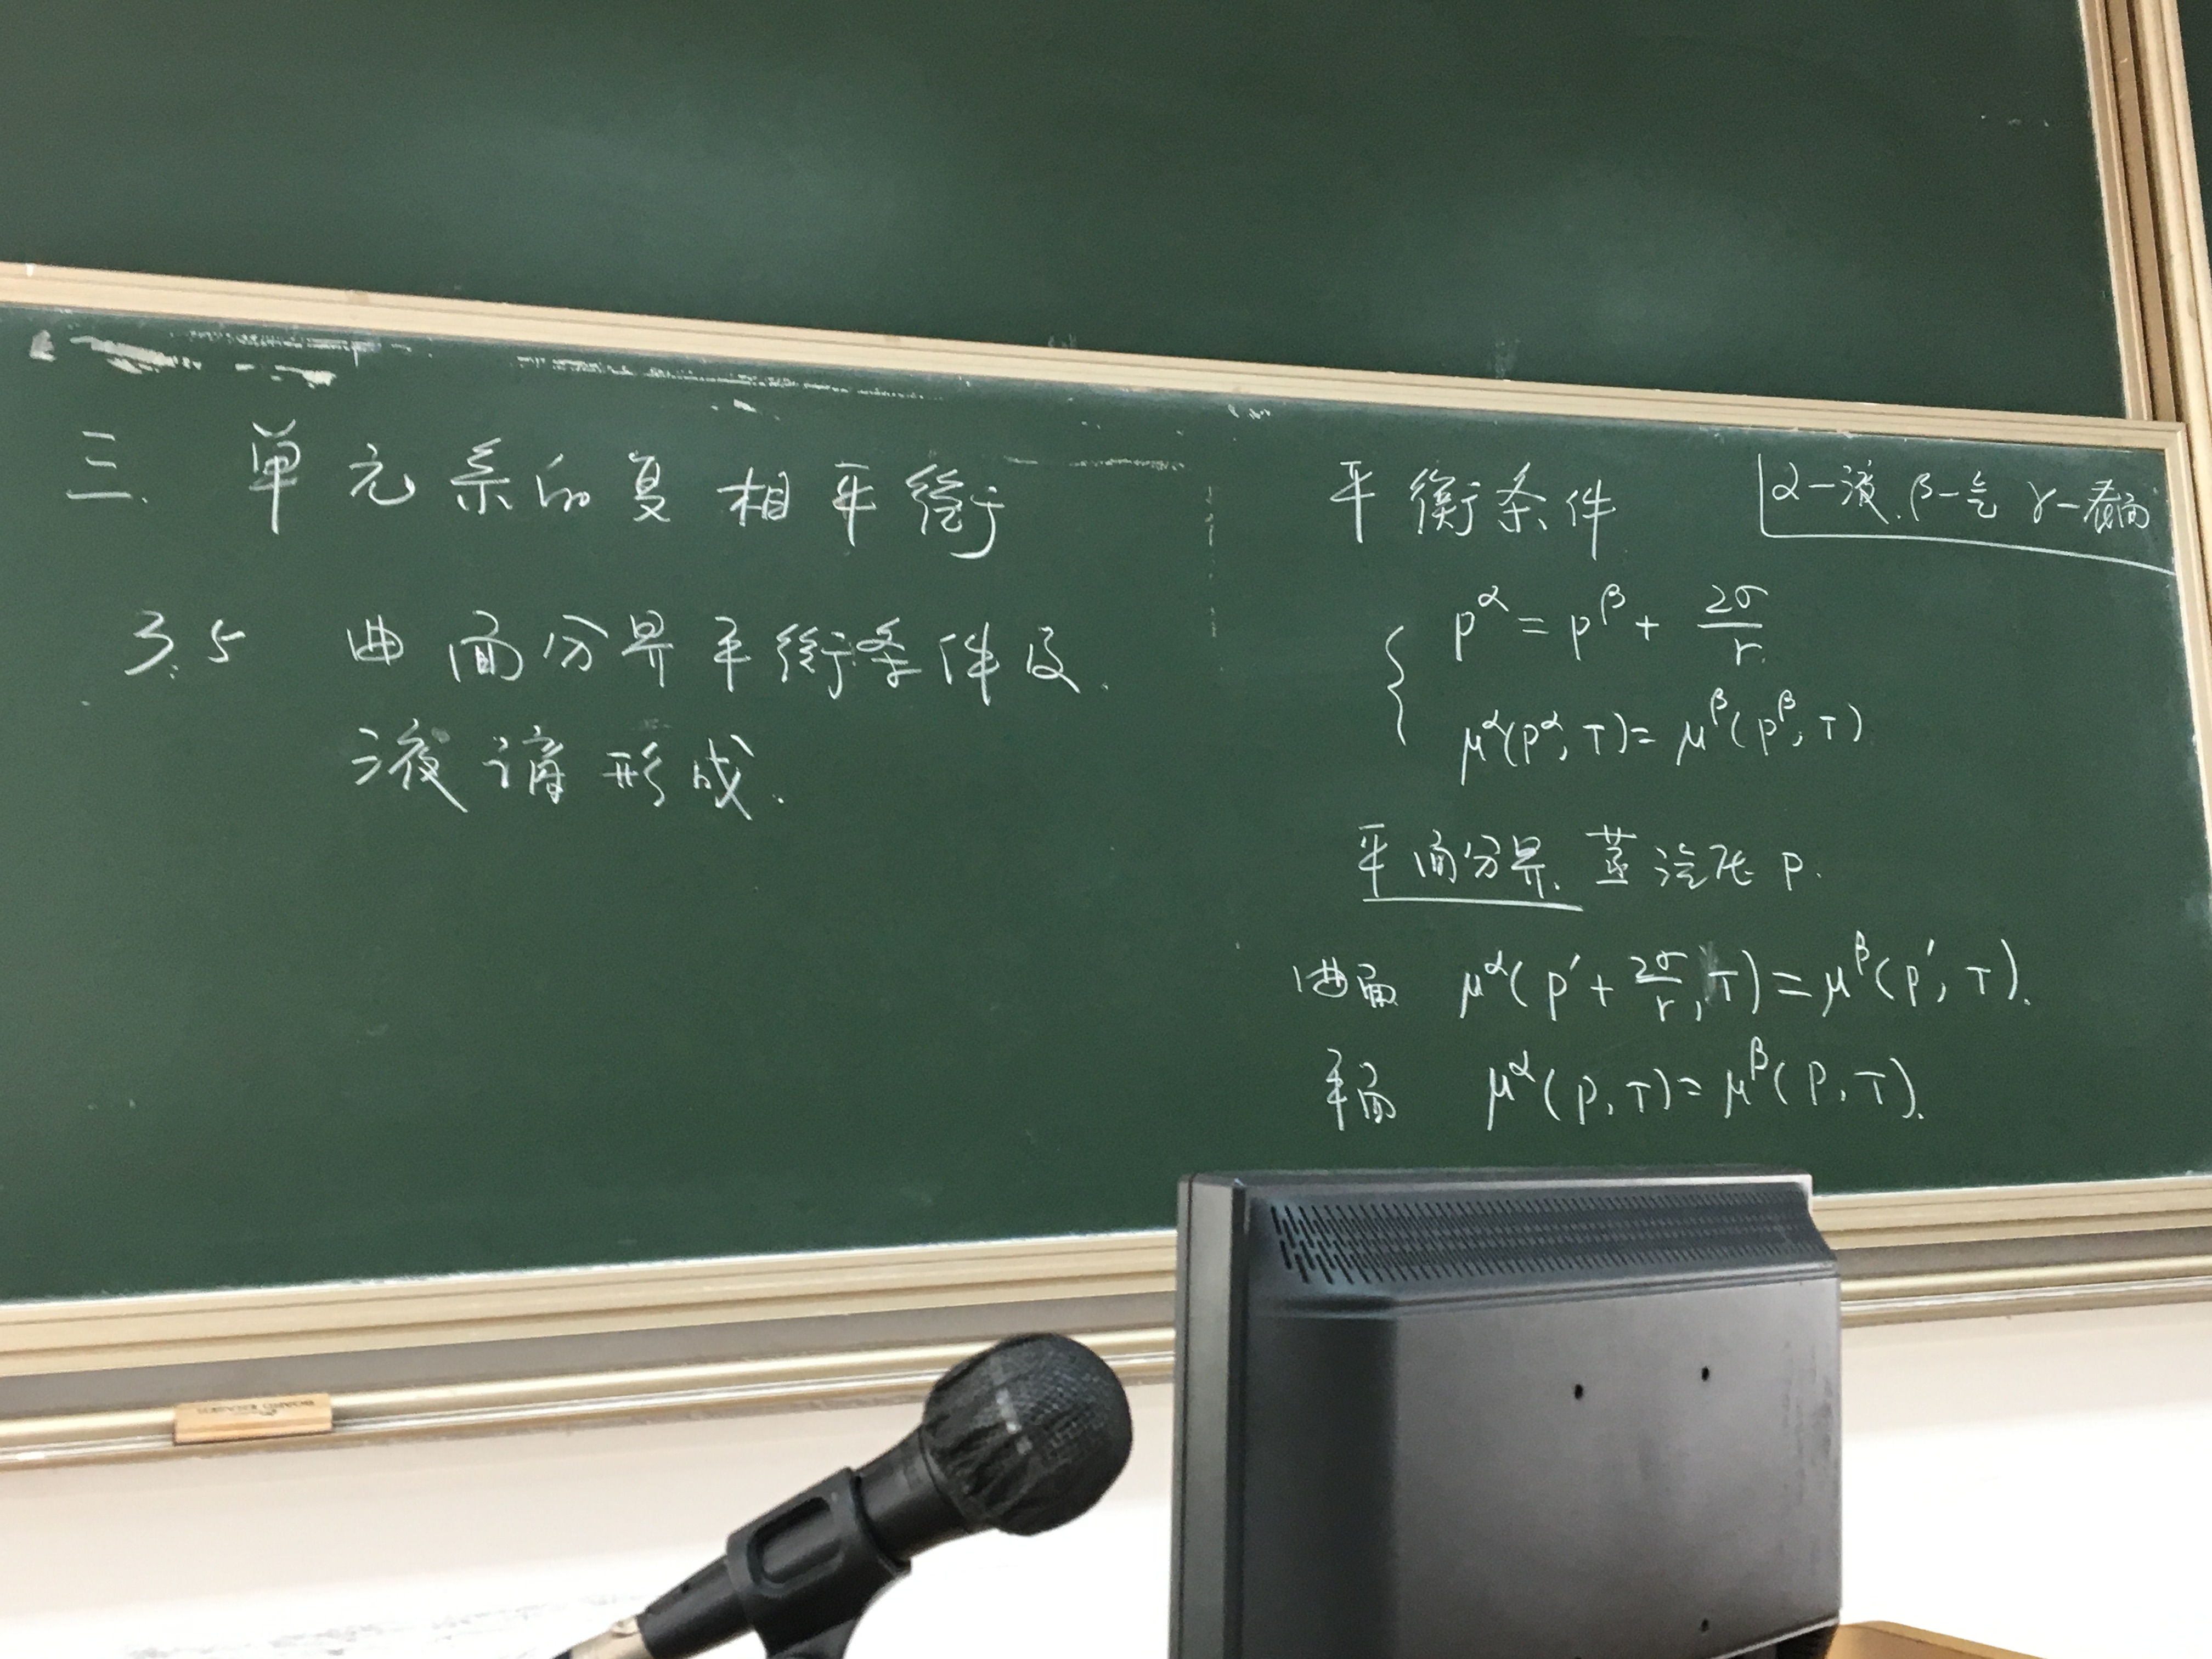 三. 单元系的复相平衡
3.5 曲面分界平衡条件及
液滴形成.
平衡条件
α-液. β-气 γ-表面
p^α = p^β + 2σ/r
μ^α(p^α, T) = μ^β(p^β, T)
平面分界. 蒸汽压 p.
曲面 μ^α(p' + 2σ/r, T) = μ^β(p', T).
平面 μ^α(p, T) = μ^β(p, T).
BOARD ERASER